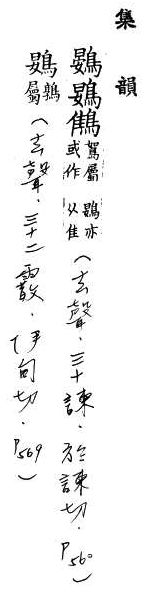 集韻
鷃鴳 鴽屬或作鷃亦从隹（去聲．三十諫．於諫切．P560）
鷃 鶉屬（去聲．三十二霰．伊甸切．P569）